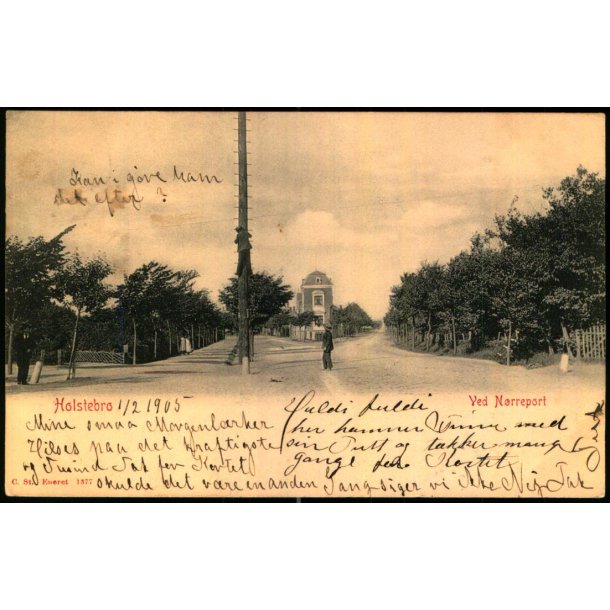 Kan i gøve ham
det efter?
Holstebro 1/2 1905
Ved Nørreport
Mine smaa Morgenlærker
Hilses paa det kraftigste
og Tusind Tak for Kortet
skulde det være en anden Gang siger vi ikke Nej Tak
Huldi fuldi
her kommer Vinne med
sin Tutt og takker mange
gange for Kortet
C. St. Eneret 1577